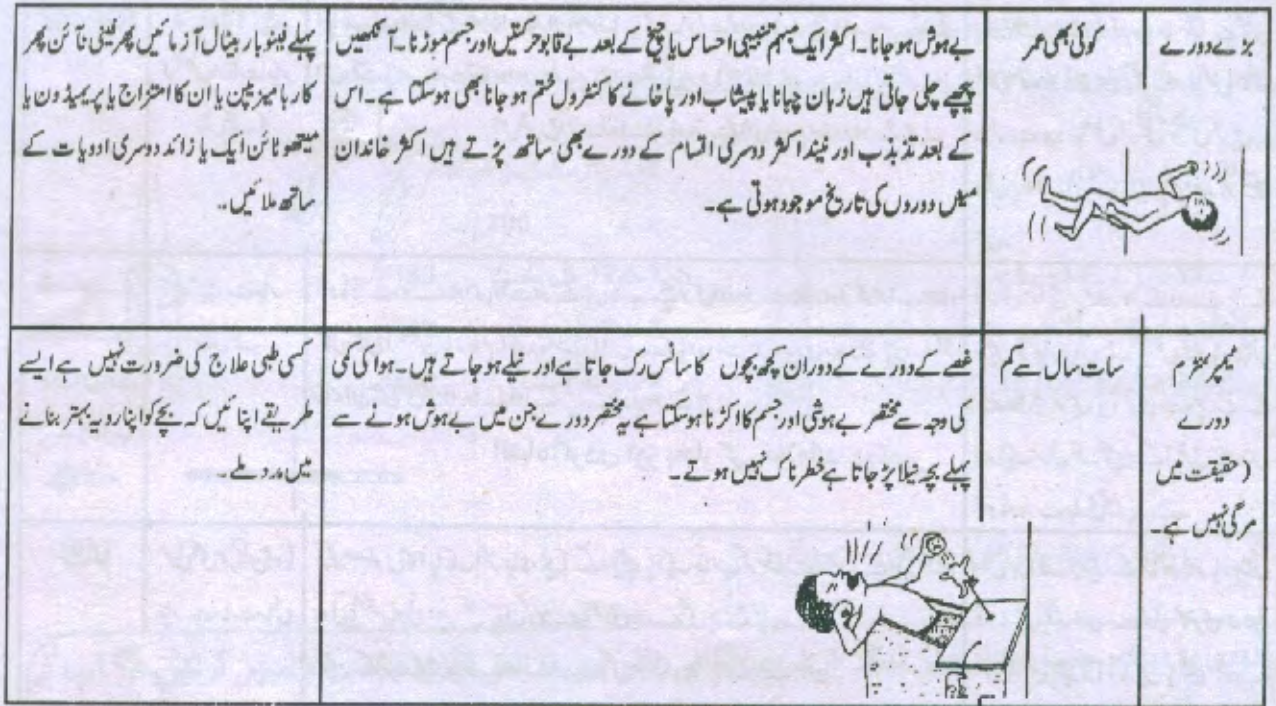 بڑے دورے
کوئی بھی عمر
بے ہوش ہو جانا۔ اکثر ایک مبہم تنبیہی احساس یا چیخ کے بعد بے قابو حرکتیں اور جسم موڑنا۔ آنکھیں
پیچھے چلی جاتی ہیں زبان چبانا یا پیشاب اور پاخانے کا کنٹرول ختم ہو جانا بھی ہو سکتا ہے۔ اس
کے بعد تذبذب اور نیند اکثر دوسری اقسام کے دورے بھی ساتھ پڑتے ہیں اکثر خاندان
میں دوروں کی تاریخ موجود ہوتی ہے۔
پہلے فینو باربیٹال آزمائیں پھر فینی ٹائن پھر
کاربامیزیپین یا ان کا امتزاج یا پریمیڈون یا
میتھوٹائن ایک یا زائد دوسری ادویات کے
ساتھ ملائیں۔
ٹیمپر ٹنٹرم
دورے
(حقیقت میں
مرگی نہیں ہے۔
سات سال سے کم
غصے کے دورے کے دوران کچھ بچوں کا سانس رک جاتا ہے اور نیلے ہو جاتے ہیں۔ ہوا کی کمی
کی وجہ سے مختصر بے ہوشی اور جسم کا اکڑنا ہو سکتا ہے یہ مختصر دورے جن میں بے ہوش ہونے سے
پہلے بچہ نیلا پڑ جاتا ہے خطرناک نہیں ہوتے۔
کسی طبی علاج کی ضرورت نہیں ہے ایسے
طریقے اپنائیں کہ بچے کو اپنا رویہ بہتر بنانے
میں مدد ملے۔